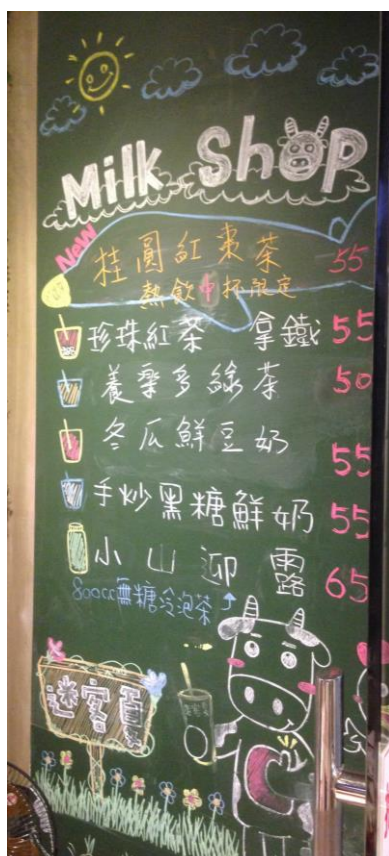 Milk Shop
New
桂圓紅棗茶 55
熱飲中杯限定
珍珠紅茶 拿鐵 55
養樂多綠茶 50
冬瓜鮮豆奶 55
手炒黑糖鮮奶 55
小山迎露 65
800cc無糖冷泡茶
迷客夏